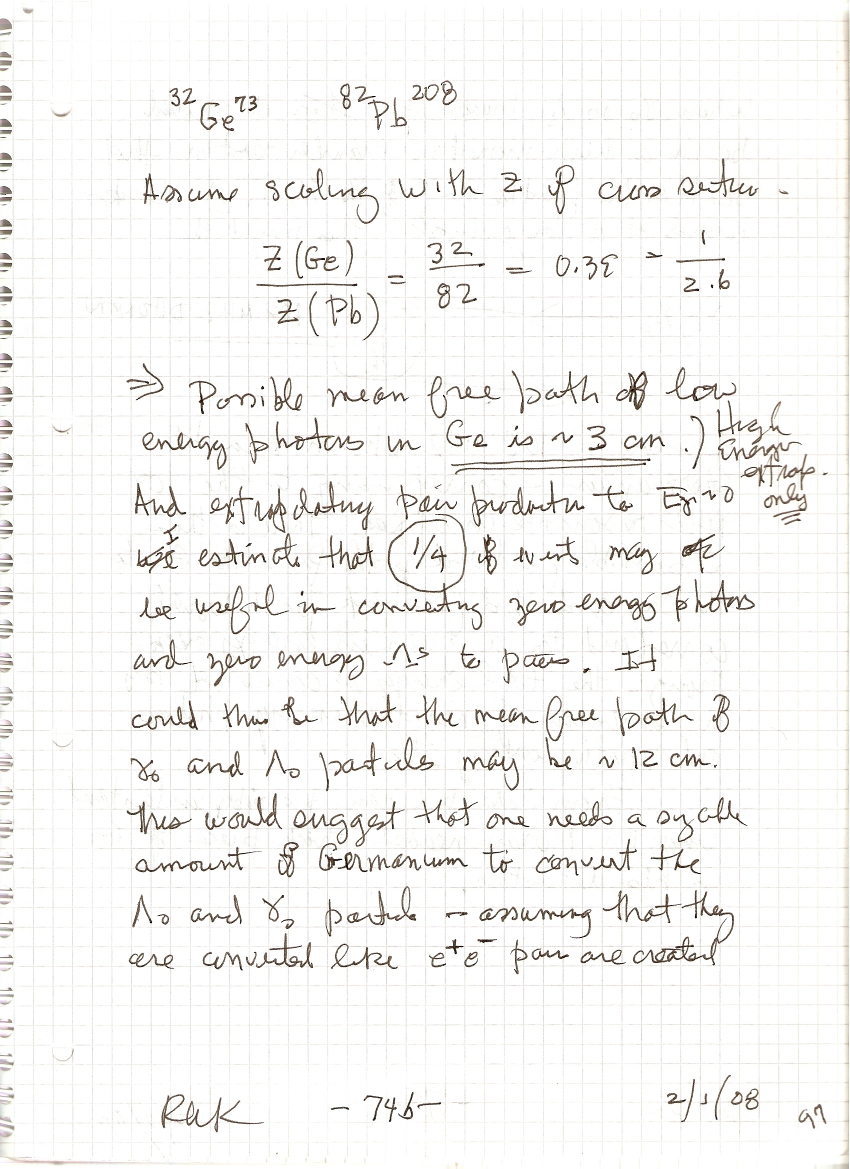 32Ge73 82Pb208
Assume scaling with Z of cross section.
Z(Ge)/Z(Pb) = 32/82 = 0.38 = 1/2.6
⇒ Possible mean free path of low
energy photons in Ge is ~ 3 cm.) High Energy extrap. only
And extrapolating pair production to Eγ~0
I estimate that 1/4 of events may
be useful in converting zero energy photons
and zero energy Λs to pairs. It
could thus be that the mean free path of
γ0 and Λ0 particles may be ~ 12 cm.
This would suggest that one needs a sizable
amount of Germanium to convert the
Λ0 and γ0 particle – assuming that they
are converted like e+e- pair are created
- 746 - 2/1/08 97